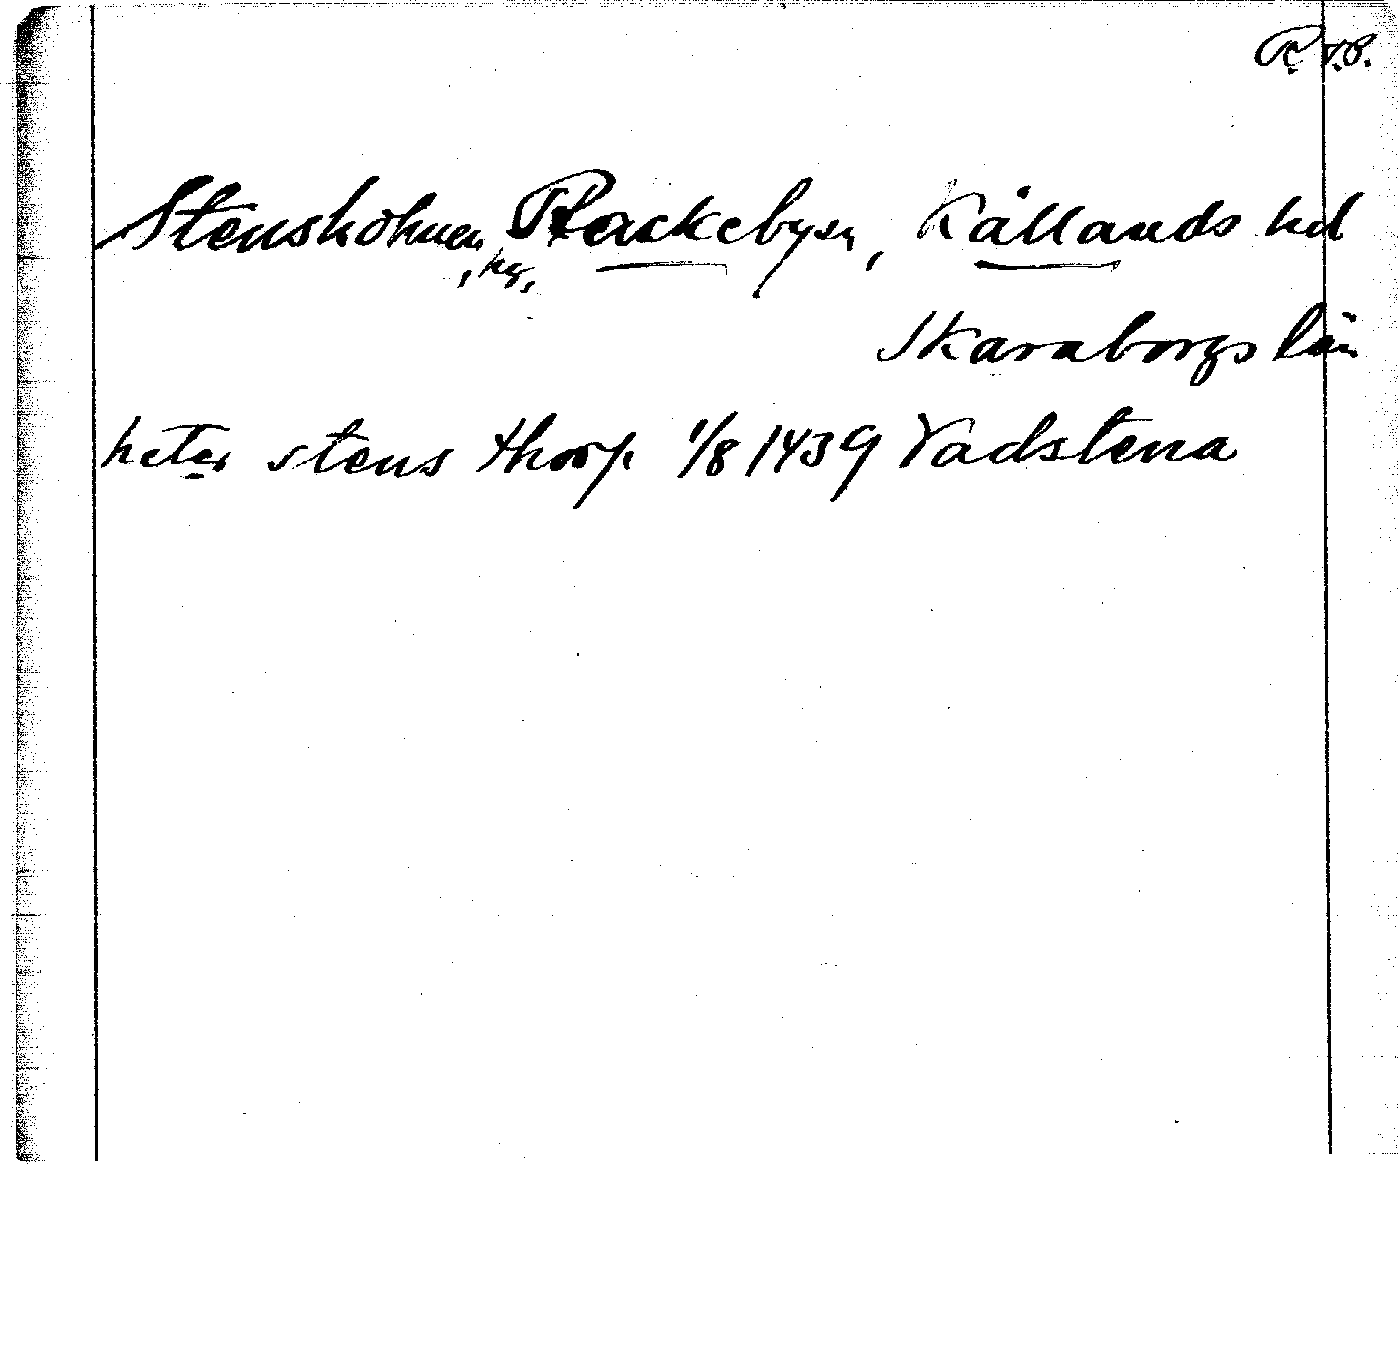 R. v.B.
Stensholmen, hg, Rackeby sn, Kållands hd
Skaraborgs län
heter stens thorp 1/8 1439 Vadstena